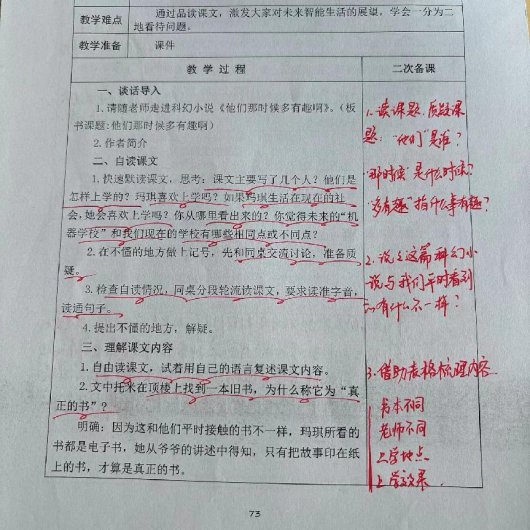 教学难点
通过品读课文，激发大家对未来智能生活的展望，学会一分为二
地看待问题。
教学准备
课件
教 学 过 程
二次备课
一、谈话导入
1.请随老师走进科幻小说《他们那时候多有趣啊》。（板
书课题:他们那时候多有趣啊）
2.作者简介
二、自读课文
1.快速默读课文，思考：课文主要写了几个人？他们是
怎样上学的？玛琪喜欢上学吗？如果玛琪生活在现在的社
会，她会喜欢上学吗？你从哪里看出来的？你觉得未来的“机
器学校”和我们现在的学校有哪些相同点或不同点？
2.在不懂的地方做上记号，先和同桌交流讨论，准备质
疑。
3.检查自读情况，同桌分段轮流读课文，要求读准字音，
读通句子。
4.提出不懂的地方，解疑。
三、理解课文内容
1.自由读课文，试着用自己的语言复述课文内容。
2.文中托米在顶楼上找到一本旧书，为什么称它为“真
正的书”？
明确：因为这和他们平时接触的书不一样，玛琪所看的
书都是电子书，她从爷爷的讲述中得知，只有把故事印在纸
上的书，才算是真正的书。
1.读课题，质疑课
题：“他们”是谁？
“那时候”是什么时候？
“多有趣”指什么事有趣？
2.说说这篇科幻小
说与我们平时看到
有什么不一样？
3.借助表格梳理内容
书本不同
老师不同
上学地点
上学效果
73